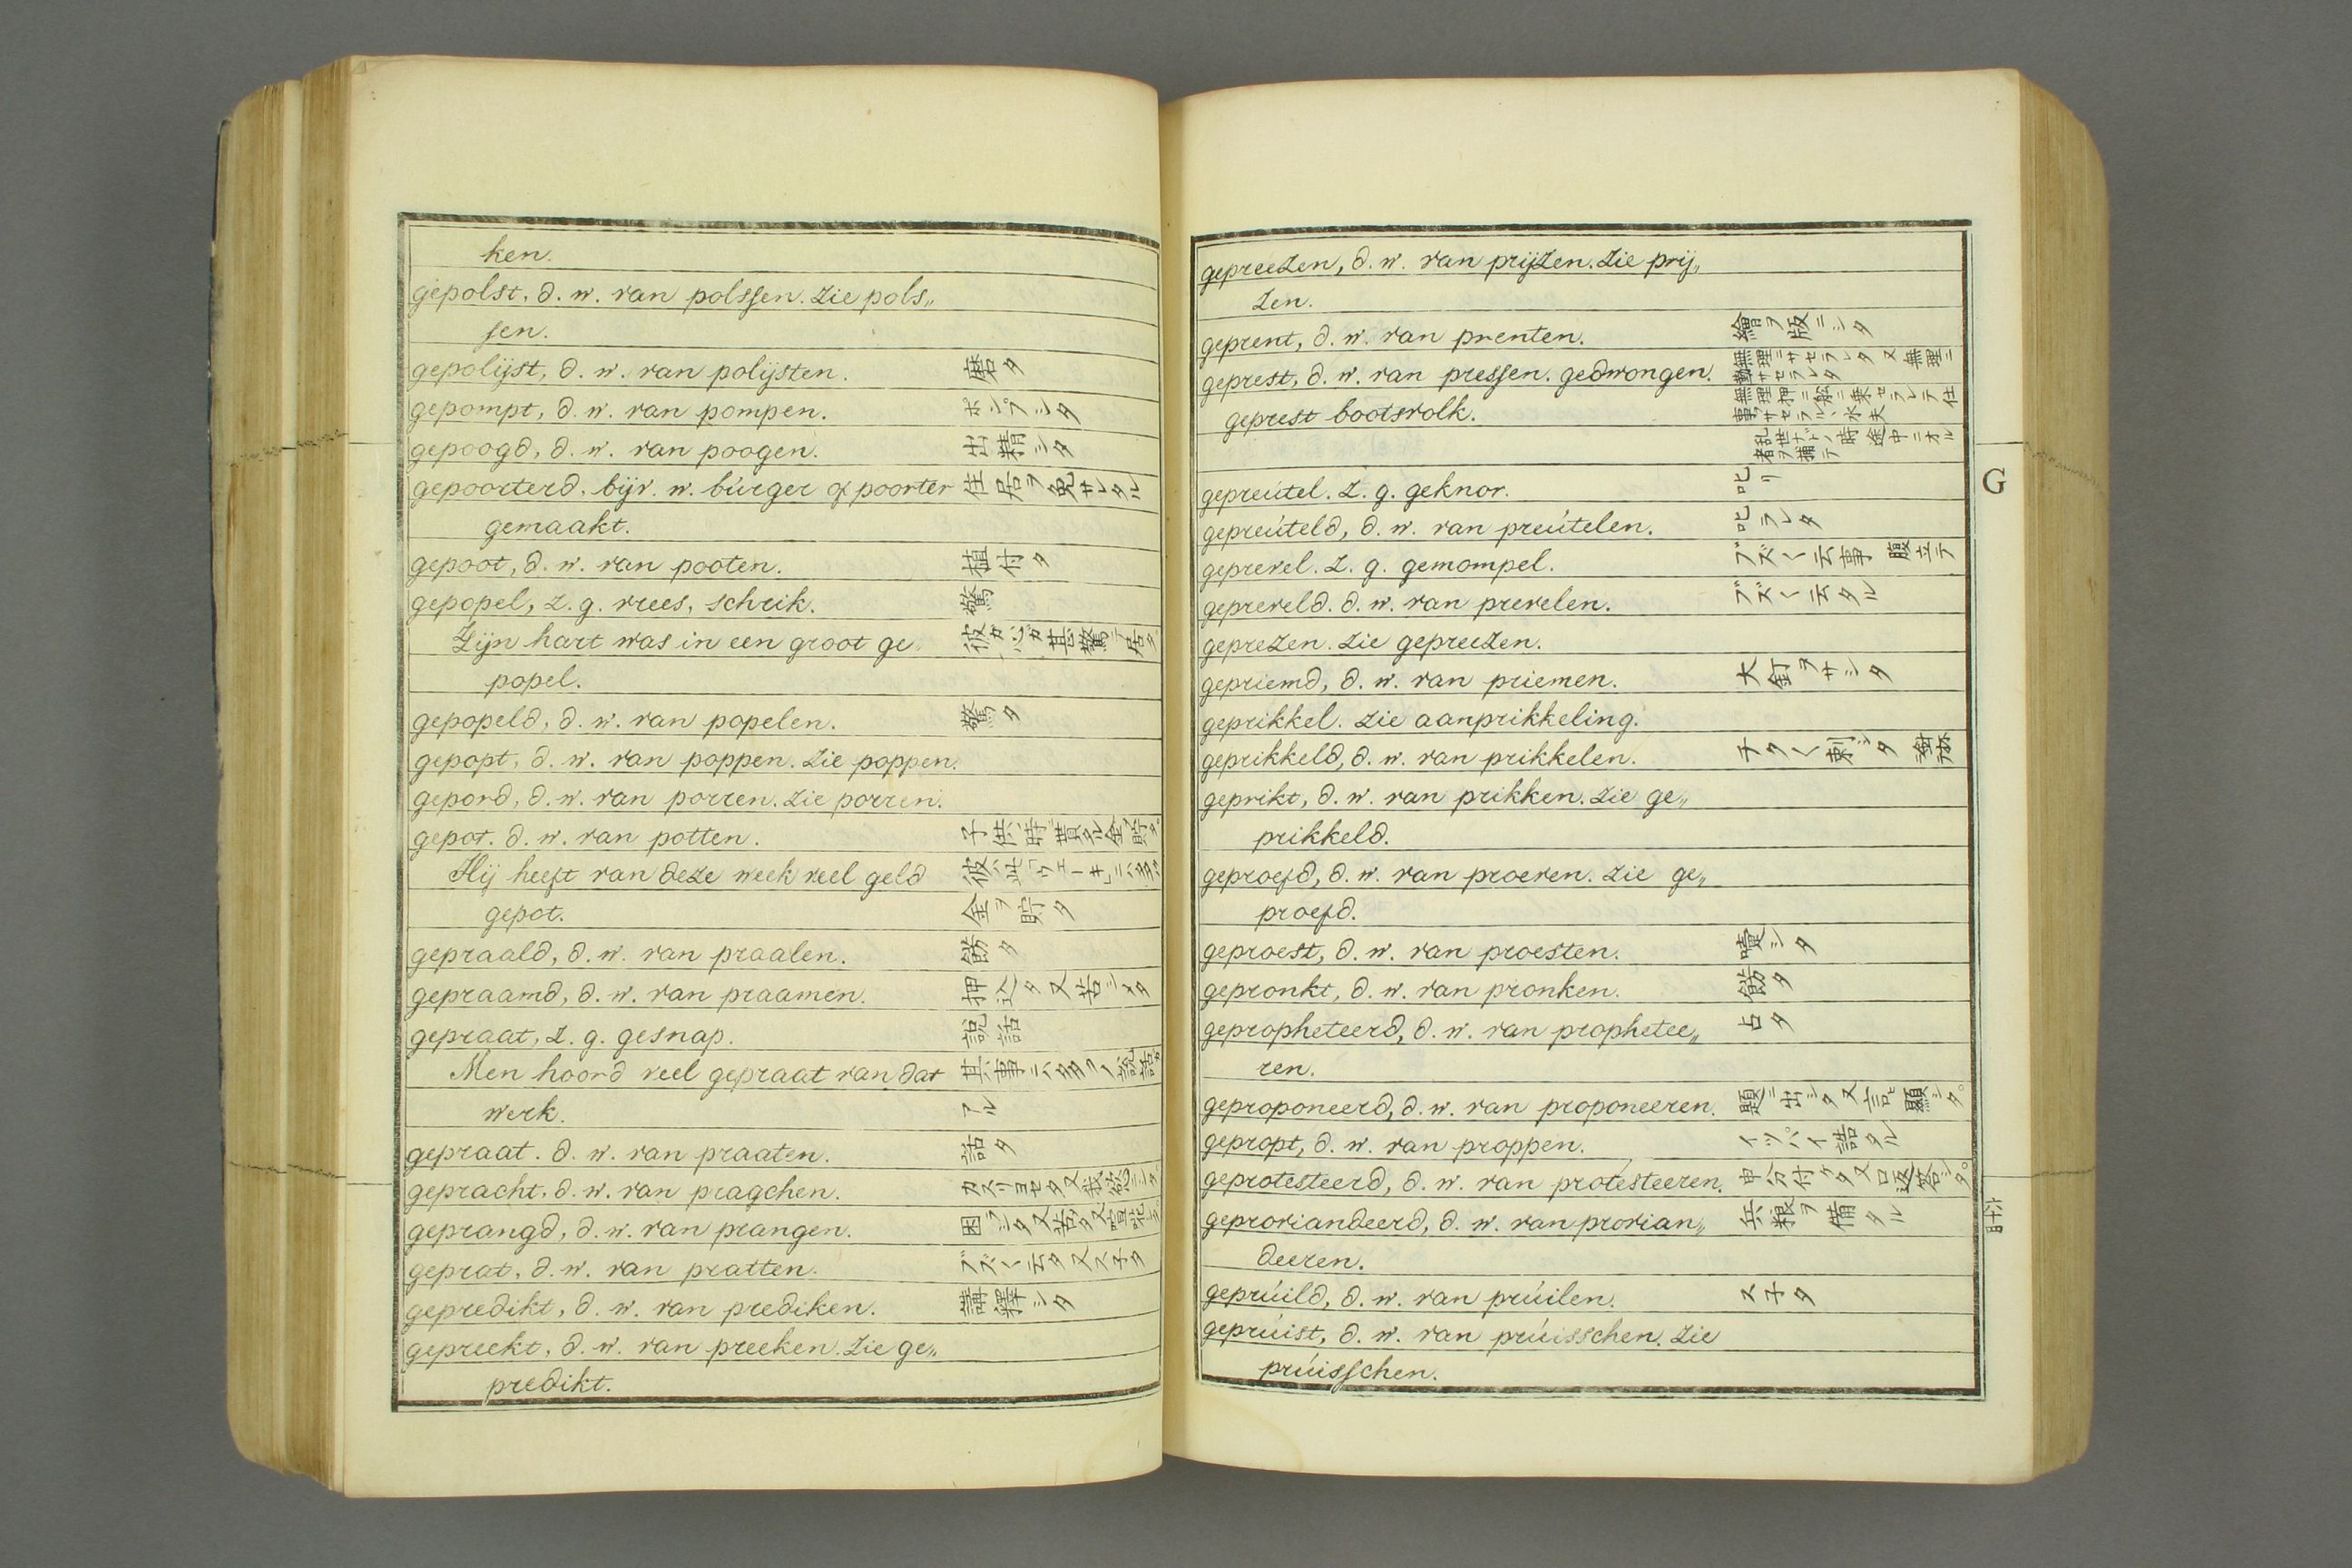 ken.
gepolst, d. w. van polssen. Zie pols„
sen.
gepolijst, d. w. van polijsten. 磨タ
gepompt, d. w. van pompen. ポンプシタ
gepoogd, d. w. van poogen. 出精シタ
gepoorterd. bijv. w. búrger of poorter 住居ヲ免サレタル
gemaakt.
gepoot, d. w. van pooten. 植付タ
gepopel, z. g. vrees, schrik. 驚
Zijn hart was in een groot ge„ 彼カ心カ甚驚テ居タ
popel.
gepopeld, d. w. van popelen. 驚タ
gepopt, d. w. van poppen. Zie poppen.
gepord, d. w. van porren. Zie porren.
gepot. d. w. van potten. 子供ノ時貰タル金ヲ貯タ
Hij heeft van deze week veel geld 彼ハ此ウェーキニハ多ク
gepot. 金ヲ貯タ
gepraald, d. w. van praalen. 餝タ
gepraamd, d. w. van praamen. 押込タ又苦シメタ
gepraat, z. g. gesnap. 説話
Men hoord veel gepraat van dat 其事ニハ多クノ説話カ
werk. アル
gepraat. d. w. van praaten. 話タ
gepracht. d. w. van pragchen. カスリヨセタ又我慾ニシタ
geprangd, d. w. van prangen.
geprat, d. w. van pratten. ブズ〱云タ又ス子タ
gepredikt, d. w. van prediken. 講釋シタ
gepreekt, d. w. van preeken. Zie ge„
predikt.
gepreezen, d. w. van prijzen. Zie prij„
zen.
geprent, d. w. van prenten. 繪ヲ版ニシタ
geprest, d. w. van pressen. gedwongen. 無理ニサセラレタ又無理ニ
勤サセラレタ
geprest bootsvolk. 無理押ニ舩ニ乗セラレテ仕
事サセラルヽ水夫
乱世ナドノ時途中ニオル
者ヲ捕テ
gepreútel. z. g. geknor. 叱リ
G
gepreúteld, d. w. van preútelen. 叱ラレタ
geprevel. z. g. gemompel. ブズ〱云事 腹立テ
gepreveld. d. w. van prevelen. ブズ〱云タル
geprezen. Zie gepreezen.
gepriemd, d. w. van priemen. 大釘ヲサシタ
geprikkel. Zie aanprikkeling.
geprikkeld, d. w. van prikkelen. チク〱刺シタ
geprikt, d. w. van prikken. Zie ge„
prikkeld.
geproefd, d. w. van proeven. Zie ge„
proefd.
geproest, d. w. van proesten. 嚏シタ
gepronkt, d. w. van pronken. 餝タ
gepropheteerd, d. w. van prophetee„ 占タ
ren.
geproponeerd, d. w. van proponeeren. 題ニ出シタ又言ヒ顯シタ
gepropt, d. w. van proppen. イッパイ詰タル
geprotesteerd, d. w. van protesteeren. 申分付タ又口返答シタ
geproviandeerd, d. w. van provian„ 兵粮ヲ備タル
deeren.
geprúild, d. w. van prúilen. ス子タ
geprúist, d. w. van prúisschen. Zie
prúisschen.